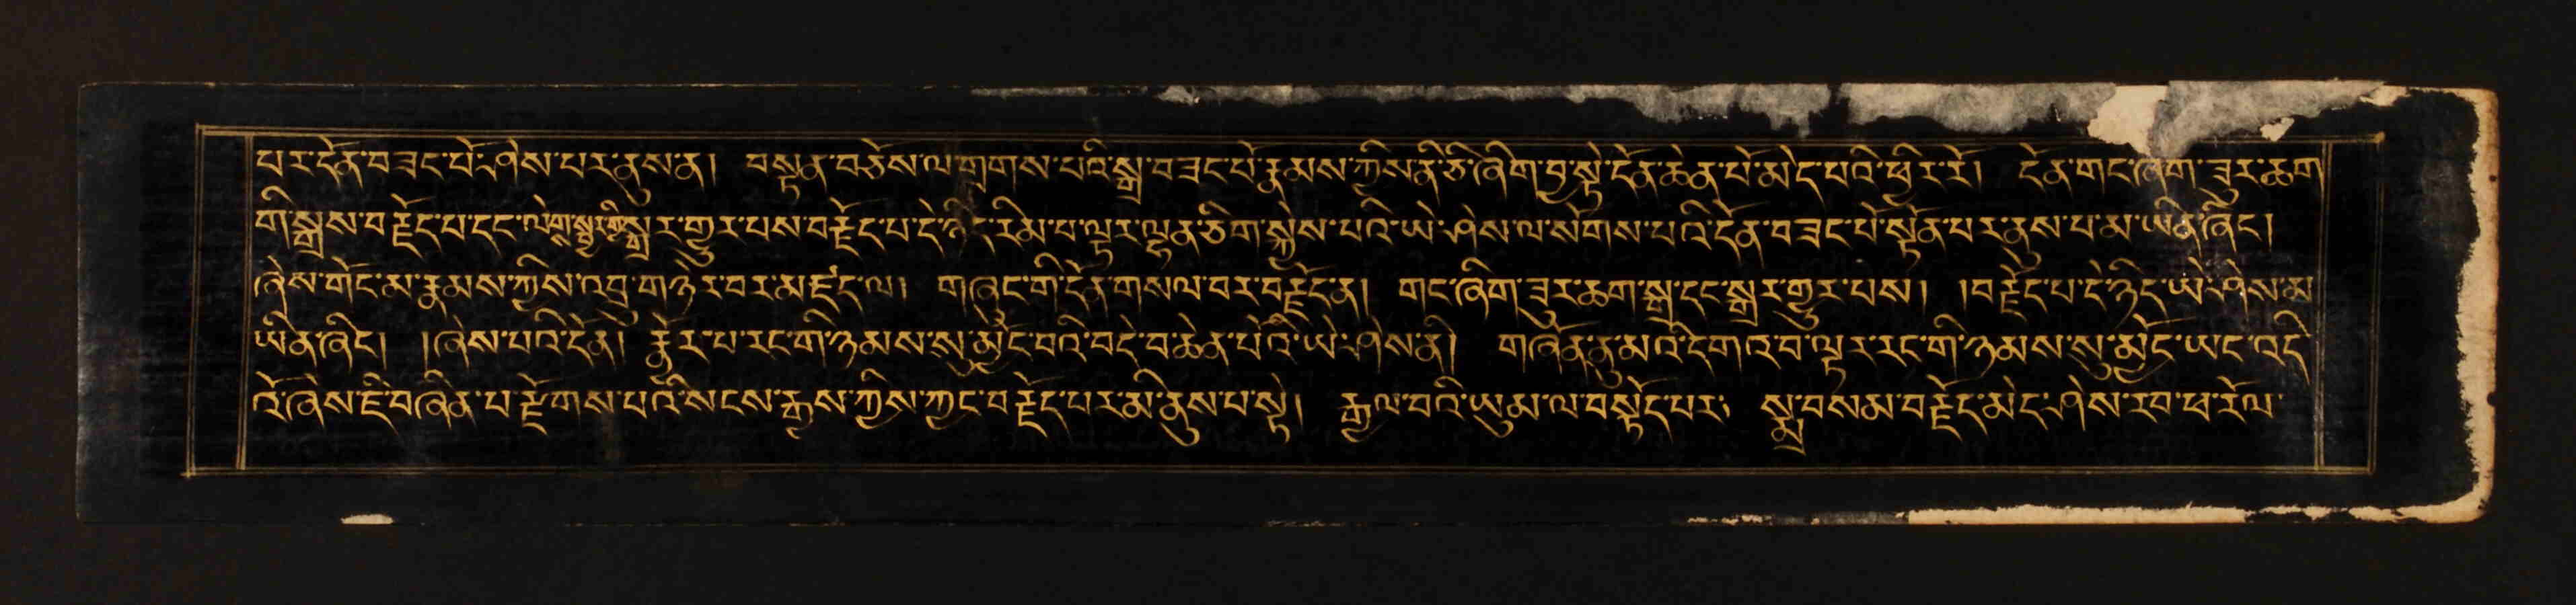 པར་དོན་བཟང་པོ་ཤེས་པར་ནུས་ན། བསྟན་བཅོས་ལ་གྲགས་པའི་སྒྲ་བཟང་པོ་རྣམས་ཀྱིས་ནི་ཅི་ཞིག་བྱ་སྟེ་དོན་ཆེན་པོ་མེད་པའི་ཕྱིར་རོ། དོན་གང་ཞིག་ཟུར་ཆག
གི་སྒྲས་བརྗོད་པ་དང་ལེགས་སྦྱར་གྱི་སྒྲར་གྱུར་པས་བརྗོད་པ་དེ་ཉིད་རིམ་པ་ལྟར་ལྷན་ཅིག་སྐྱེས་པའི་ཡེ་ཤེས་ལ་སོགས་པའི་དོན་བཟང་པོ་སྟོན་པར་ནུས་པ་མ་ཡིན་ཞིང།
ཞེས་གོང་མ་རྣམས་ཀྱིས་འབྲུ་གཉེར་བར་མཛད་ལ། གཞུང་གི་དོན་གསལ་བར་བརྗོད་ན། གང་ཞིག་ཟུར་ཆག་སྒྲ་དང་སྒྲར་གྱུར་པས། །བརྗོད་པ་དེ་ཉིད་ཡེ་ཤེས་མ
ཡིན་ཞིང། །ཞེས་པའི་དོན། རྣེར་པ་རང་གི་ཉམས་སུ་མྱོང་བའི་བདེ་བ་ཆེན་པོའི་ཡེ་ཤེས་ནི། གཞོན་ནུ་མའི་དགའ་བ་ལྟར་རང་གི་ཉམས་སུ་མྱོང་ཡང་འདི
འོ་ཞེས་ཇི་བཞིན་པ་རྫོགས་པའི་སངས་རྒྱས་ཀྱིས་ཀྱང་བརྗོད་པར་མི་ནུས་པ་སྟེ། རྒྱལ་བའི་ཡུམ་ལ་བསྟོད་པར་ སྨྲ་བསམ་བརྗོད་མེད་ཤེས་རབ་ཕ་རོལ་